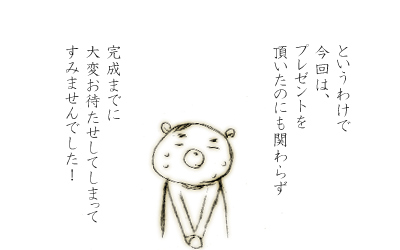 というわけで
今回は、
プレゼントを
頂いたのにも関わらず
完成までに
大変お待たせしてしまって
すみませんでした！